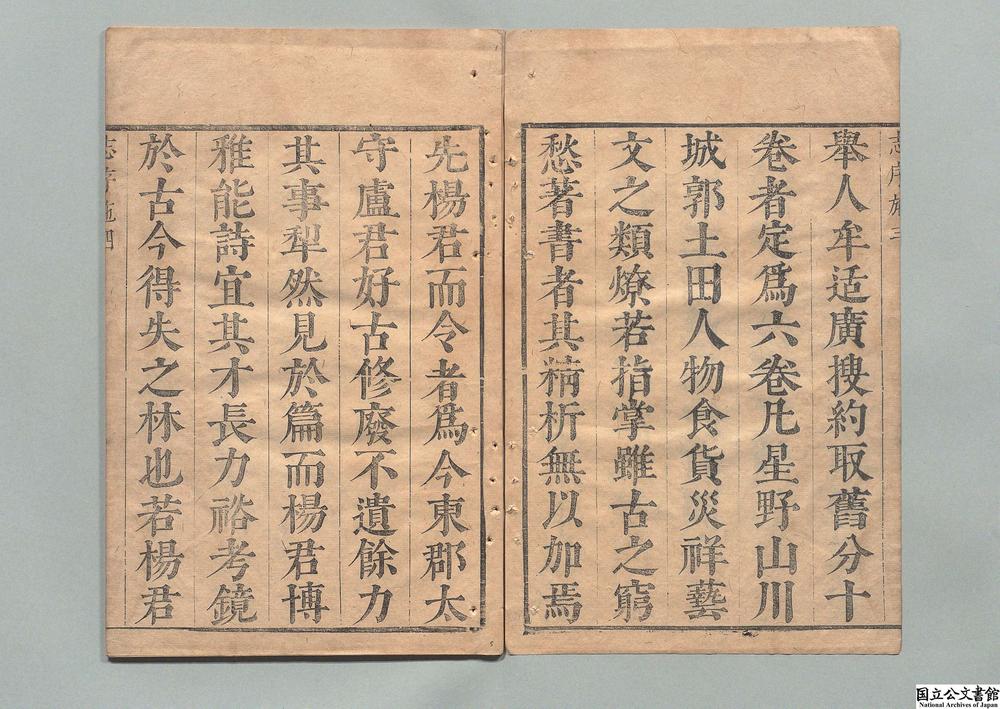 志序施三
舉人牟适廣搜約取舊分十
卷者定爲六卷凡星野山川
城郭土田人物食貨災祥藝
文之類燎若指掌雖古之窮
愁著書者其精析無以加焉
先楊君而令者爲今東郡太
守盧君好古修廢不遺餘力
其事犁然見於篇而楊君博
雅能詩宜其才長力裕考鏡
於古今得失之林也若楊君
志序施四
国立公文書館
National Archives of Japan